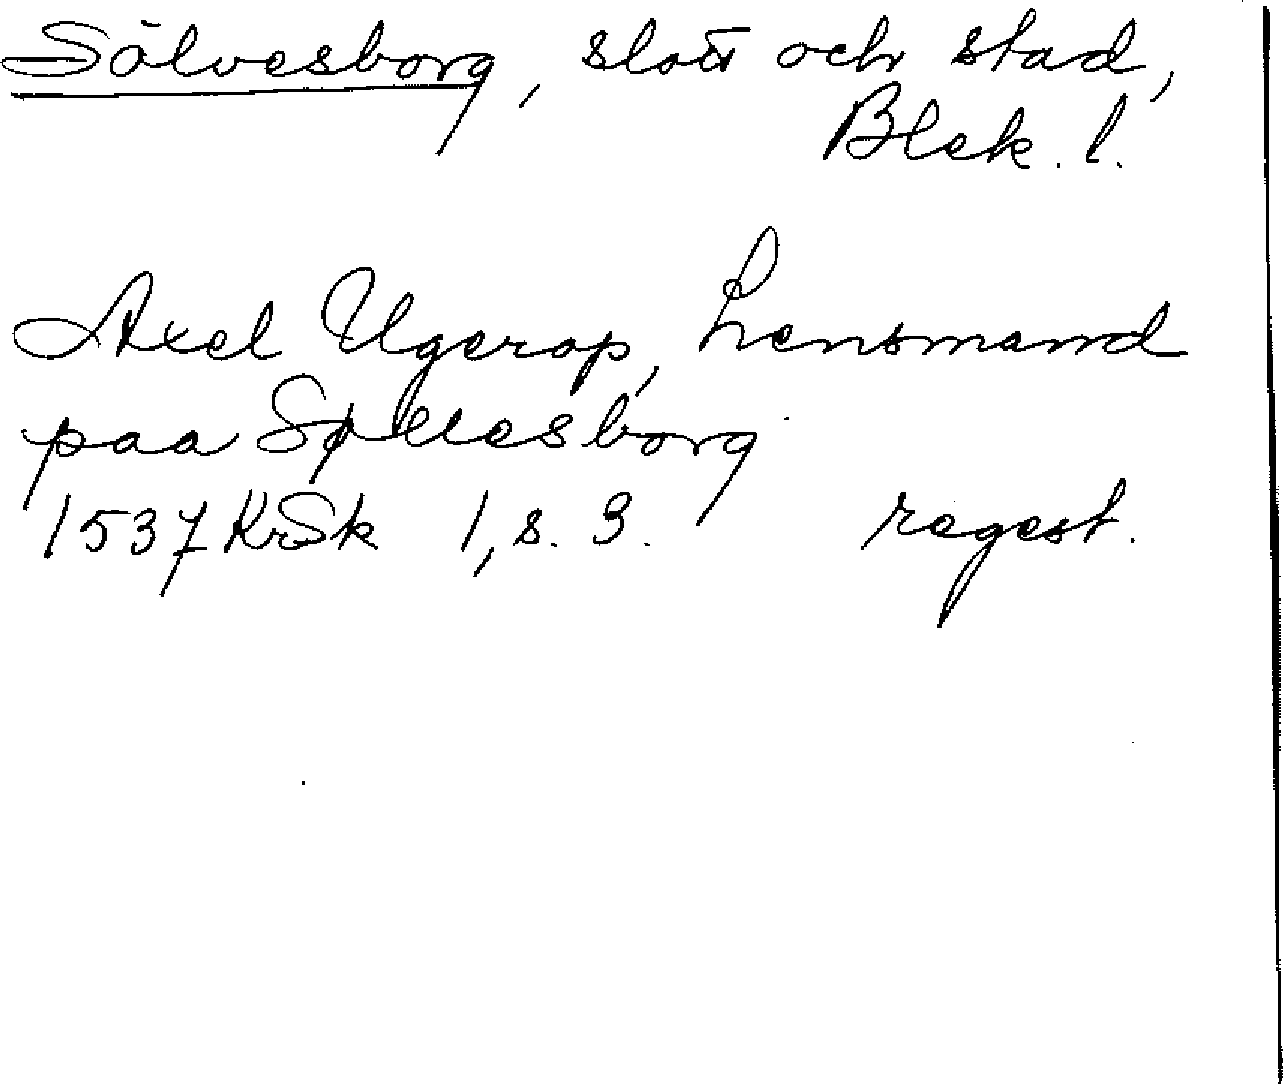 Sölvesborg, slott och stad,
Blek. l.
Axel Ugerop, Lensmand
paa Søluesborg
1537 KrSk 1, s. 3. regest.